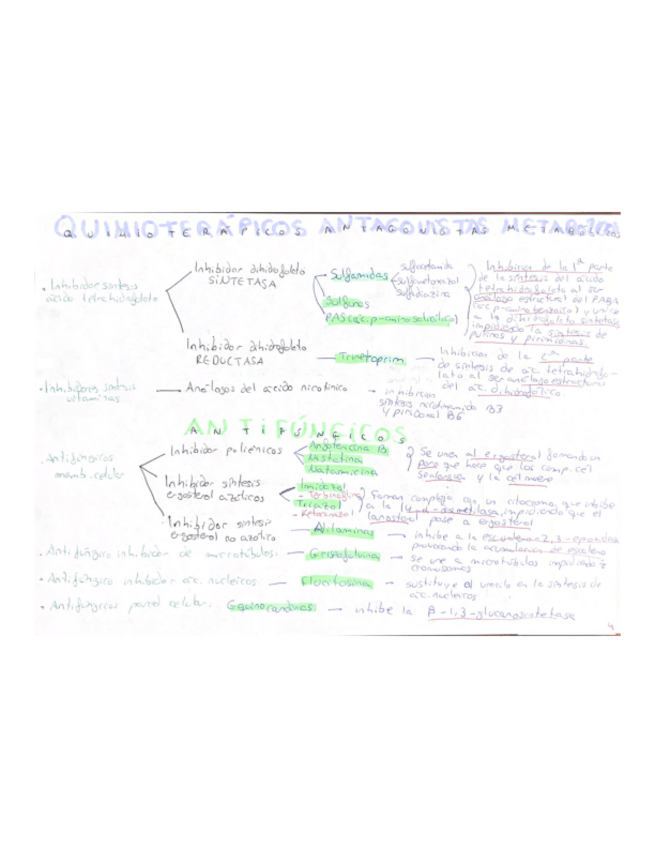 QUIMIOTERÁPICOS ANTAGONISTAS METABÓLICOS
· Inhibidor síntesis
ácido tetrahidrofolato
Inhibidor dihidrofolato
SINTETASA
Sulfamidas
sulfacetamida
sulfametoxazol
sulfadiazina
Sulfonas
PAS (ác. p-aminosalicílico)
Inhibición de la 1ª parte
de la síntesis del ácido
tetrahidrofolato al ser
análogo estructural del PABA
(ác. p-aminobenzoico) y unirse
a la dihidrofolato sintetasa
impidiendo la síntesis de
purinas y pirimidinas.
Inhibidor dihidrofolato
REDUCTASA
Trimetoprim
Inhibición de la 2ª parte
de síntesis de ác. tetrahidrofo-
lato al ser análogo estructural
del ác. dihidrofólico.
· Inhibidores síntesis
vitaminas
Análogos del ácido nicotínico
inhibición
síntesis nicotinamida B3
y piridoxal B6
ANTIFÚNGICOS
· Antifúngicos
memb. celular
Inhibidor poliénicos
Anfotericina B
Nistatina
Natamicina
Se unen al ergosterol formando un
poro que hace que los comp. cel
salgan y la cel muere
Inhibidor síntesis
ergosterol azólicos
Imidazol
- Terbinafina
Triazol
- Ketoconazol
Forman complejo con un citocromo, que inhibe
a la 14-α-desmetilasa, impidiendo que el
lanosterol pase a ergosterol
Inhibidor síntesis
ergosterol no azólico
Alilaminas
inhibe a la escualeno-2,3-epoxidasa
provocando la acumulación de escualeno
· Antifúngico inhibidor de microtúbulos:
Griseofulvina
se une a microtúbulos impidiendo
cromosomas
· Antifúngico inhibidor ác. nucleicos
Flucitosina
sustituye el uracilo en la síntesis de
ác. nucleicos
· Antifúngicos pared celular.
Equinocandinas
inhibe la β-1,3-glucanosintetasa
4